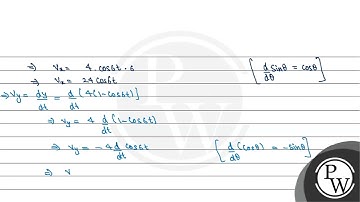 ⇒ vₓ = 4·cos6t·6
⇒ vₓ = 24 cos6t [d/dθ sinθ = cosθ]
⇒ vy = dy/dt = d/dt [4(1-cos6t)]
⇒ vy = 4 d/dt (1-cos6t)
⇒ vy = -4 d/dt cos6t [d/dθ (cosθ) = -sinθ]
⇒ v
P
W
P
W